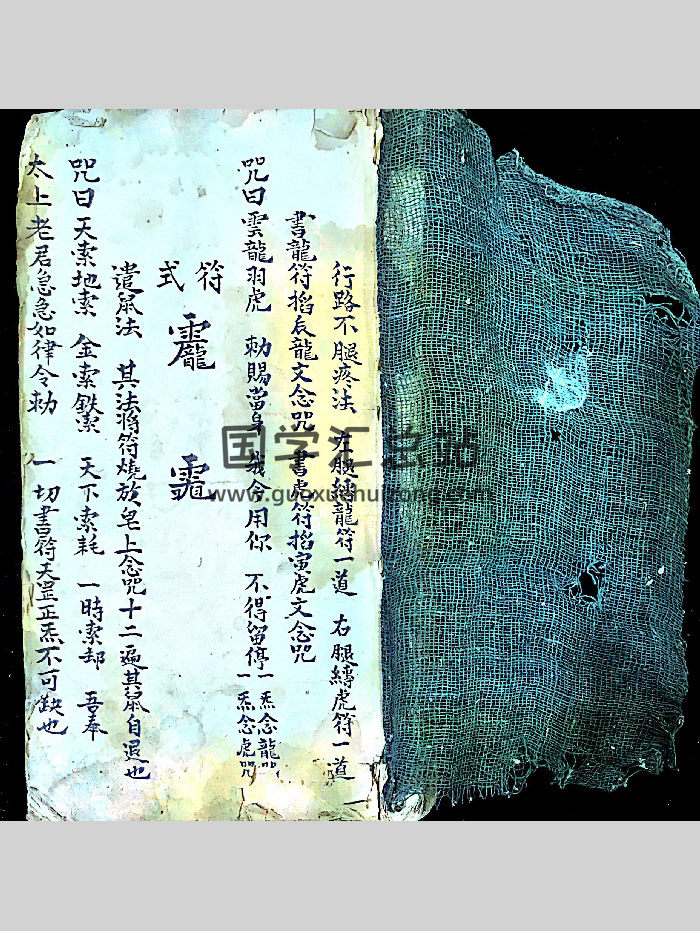 行路不腿疼法 左腿縛龍符一道 右腿縛虎符一道
書龍符掐辰龍文念咒 書虎符掐寅虎文念咒
咒曰 雲龍羽虎 勅賜當身 我今用你 不得留停 一炁念龍咒 一炁念虎咒
符式
遣鼠法 其法將符燒放皂上念咒十二遍其鼠自退也
咒曰 天索地索 金索鉄索 天下索耗 一時索却 吾奉
太上老君急急如律令勅 一切書符天罡正炁不可缺也
国学汇总站
www.guoxuehuizong.com